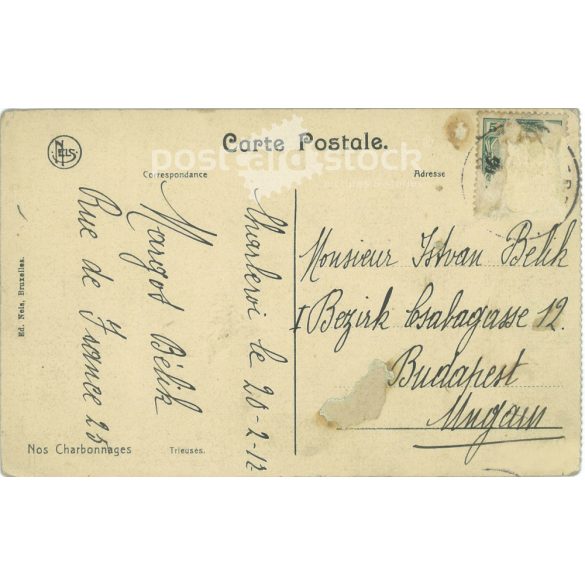 Carte Postale.
NELS
postcard stock
Correspondance
Adresse
Charleroi le 20-2-12
Margot Bélik
Rue de France 25
Monsieur Istvan Bélik
I Bezirk Csabagasse 12.
Budapest
Ungarn
Ed. Nels, Bruxelles.
Nos Charbonnages
Trieuses.
5